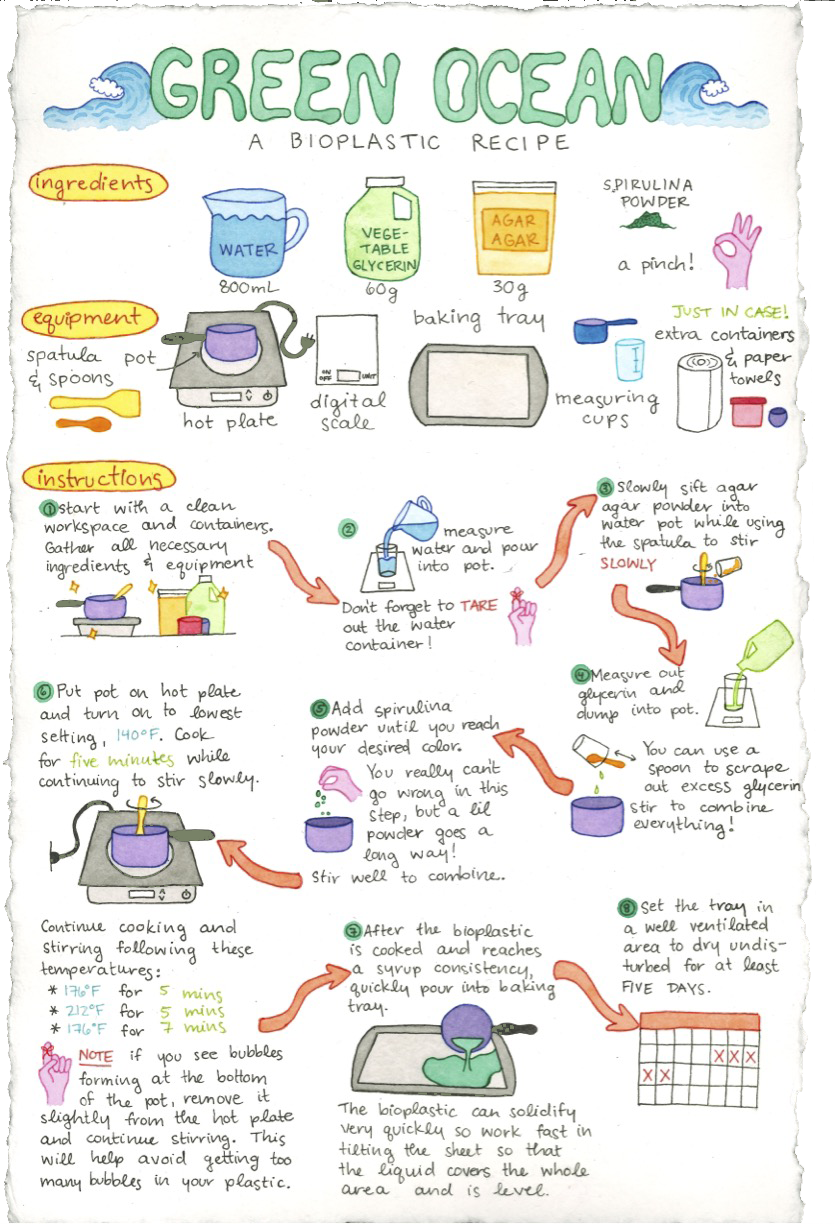 GREEN OCEAN
A BIOPLASTIC RECIPE
ingredients
WATER
800mL
VEGE-
TABLE
GLYCERIN
60g
AGAR
AGAR
30g
SPIRULINA
POWDER
a pinch!
equipment
spatula
& spoons
pot
hot plate
ON
OFF
UNIT
digital
scale
baking tray
measuring
cups
JUST IN CASE!
extra containers
& paper
towels
instructions
① start with a clean
workspace and containers.
Gather all necessary
ingredients & equipment
② measure
water and pour
into pot.
Don't forget to TARE
out the water
container!
③ Slowly sift agar
agar powder into
water pot while using
the spatula to stir
SLOWLY
④ Measure out
glycerin and
dump into pot.
You can use a
spoon to scrape
out excess glycerin
stir to combine
everything!
⑤ Add spirulina
powder until you reach
your desired color.
You really can't
go wrong in this
step, but a lil
powder goes a
long way!
Stir well to combine.
⑥ Put pot on hot plate
and turn on to lowest
setting, 140°F. Cook
for five minutes while
continuing to stir slowly.
Continue cooking and
stirring following these
temperatures:
* 176°F for 5 mins
* 212°F for 5 mins
* 176°F for 7 mins
NOTE if you see bubbles
forming at the bottom
of the pot, remove it
slightly from the hot plate
and continue stirring. This
will help avoid getting too
many bubbles in your plastic.
⑦ After the bioplastic
is cooked and reaches
a syrup consistency,
quickly pour into baking
tray.
The bioplastic can solidify
very quickly so work fast in
tilting the sheet so that
the liquid covers the whole
area and is level.
⑧ Set the tray in
a well ventilated
area to dry undis-
turbed for at least
FIVE DAYS.
X X X
X X